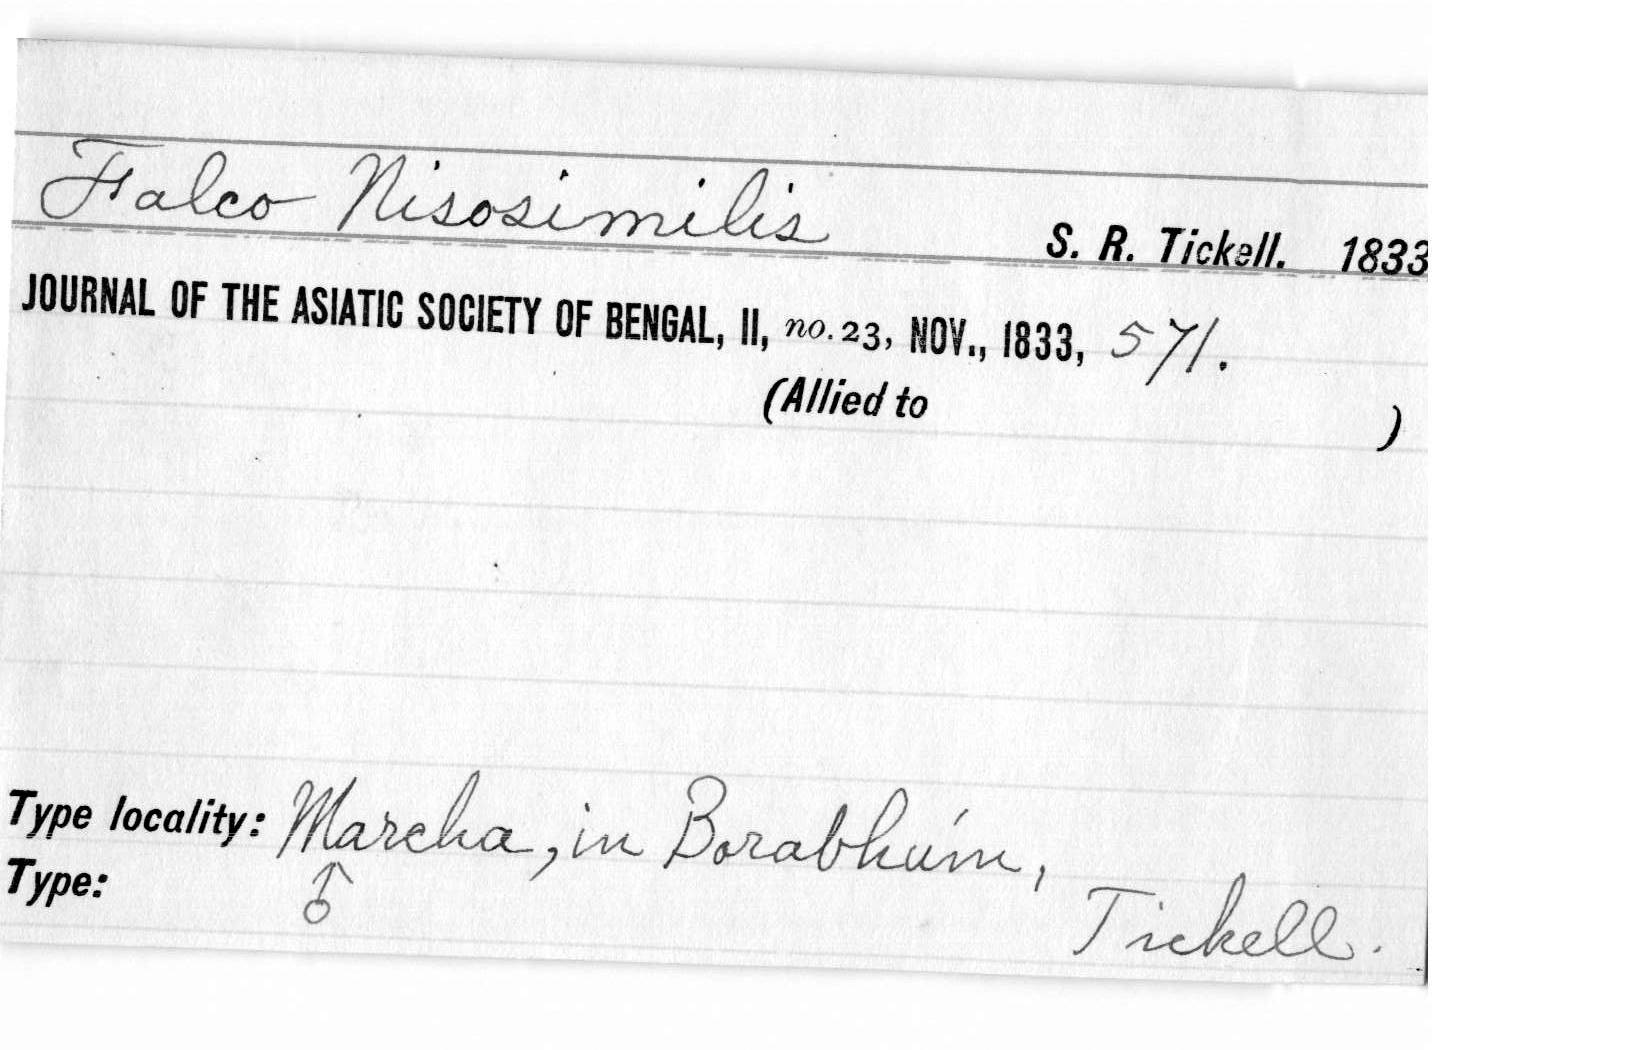 Falco Nisosimilis S. R. Tickell. 1833
JOURNAL OF THE ASIATIC SOCIETY OF BENGAL, II, no. 23, NOV., 1833, 571.
(Allied to )
Type locality: Marcha, in Borabhúm,
Type: ♂ Tickell.